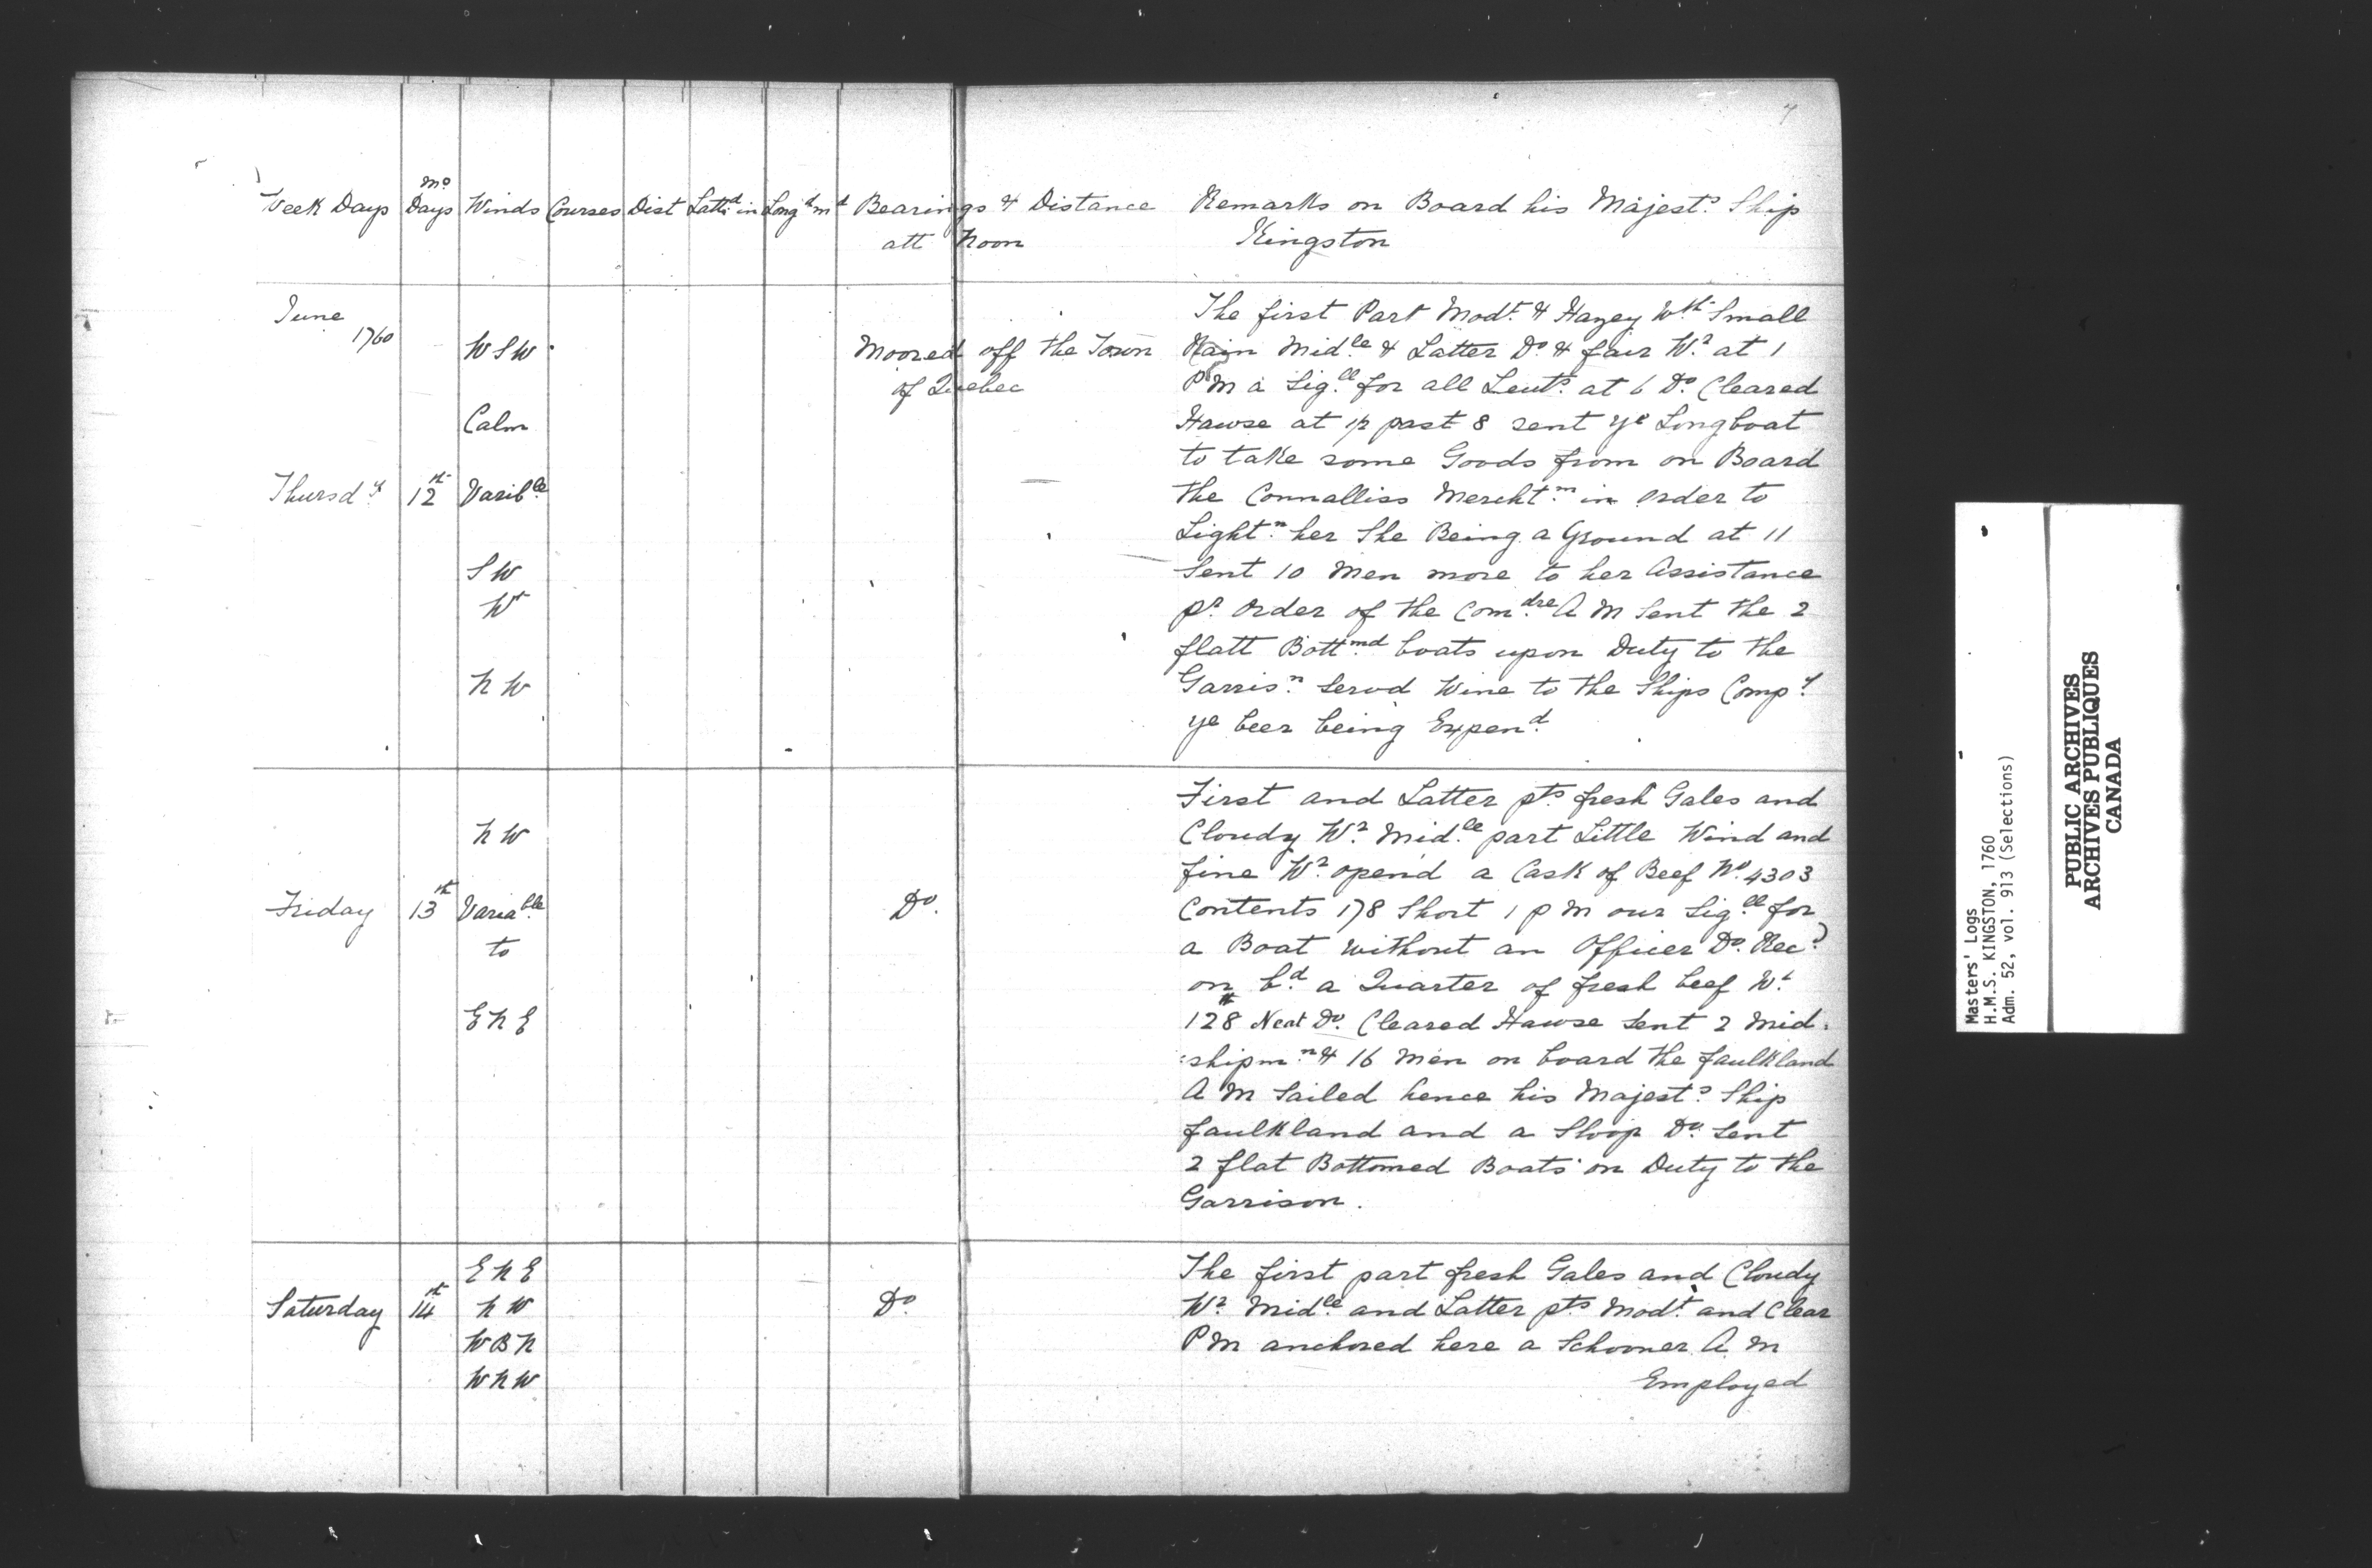 7
Week Days Mo Days Winds Courses Dist Lattd in Longd in Bearings & Distance att Noon
Remarks on Board his Majests Ship
Kingston
June
1760
WSW
Calm
Thursdy 12th Varible
SW
W
NW
Moored off the Town
of Quebec
The first Part Modt & Hazey Wth Small
Rain Midle & Latter Do & fair Wr at 1
PM a Sigll for all Leuts at 6 Do Cleared
Hawse at 1/2 past 8 sent ye Longboat
to take some Goods from on Board
the Connalliss Merchtm in order to
Lightn her She Being a Ground at 11
Sent 10 Men more to her Assistance
pr Order of the Comdre A M Sent the 2
flatt Bottmd boats upon Duty to the
Garrisn Servd Wine to the Ships Compy
ye beer being Expend
NW
Friday 13th Variable
to
ENE
Do
First and Latter pts fresh Gales and
Cloudy Wr Midle part Little Wind and
fine Wr opend a Cask of Beef No 4303
Contents 178 Short 1 p M our Sigll for
a Boat without an Officer Do Recd
on bd a Quarter of fresh beef Wt
128 Neat Do Cleared Hawse Sent 2 Mid:
:shipmn & 16 Men on board the faulkland
A M Sailed hence his Majests Ship
faulkland and a Sloop Do Sent
2 flat Bottomed Boats on Duty to the
Garrison.
ENE
Saturday 14th NW
WBN
WNW
Do
The first part fresh Gales and Cloudy
Wr Midle and Latter pts Modt and Clear
PM anchored here a Schooner A M
Employed
Masters' Logs
H.M.S. KINGSTON, 1760
Adm. 52, vol. 913 (Selections)
PUBLIC ARCHIVES
ARCHIVES PUBLIQUES
CANADA